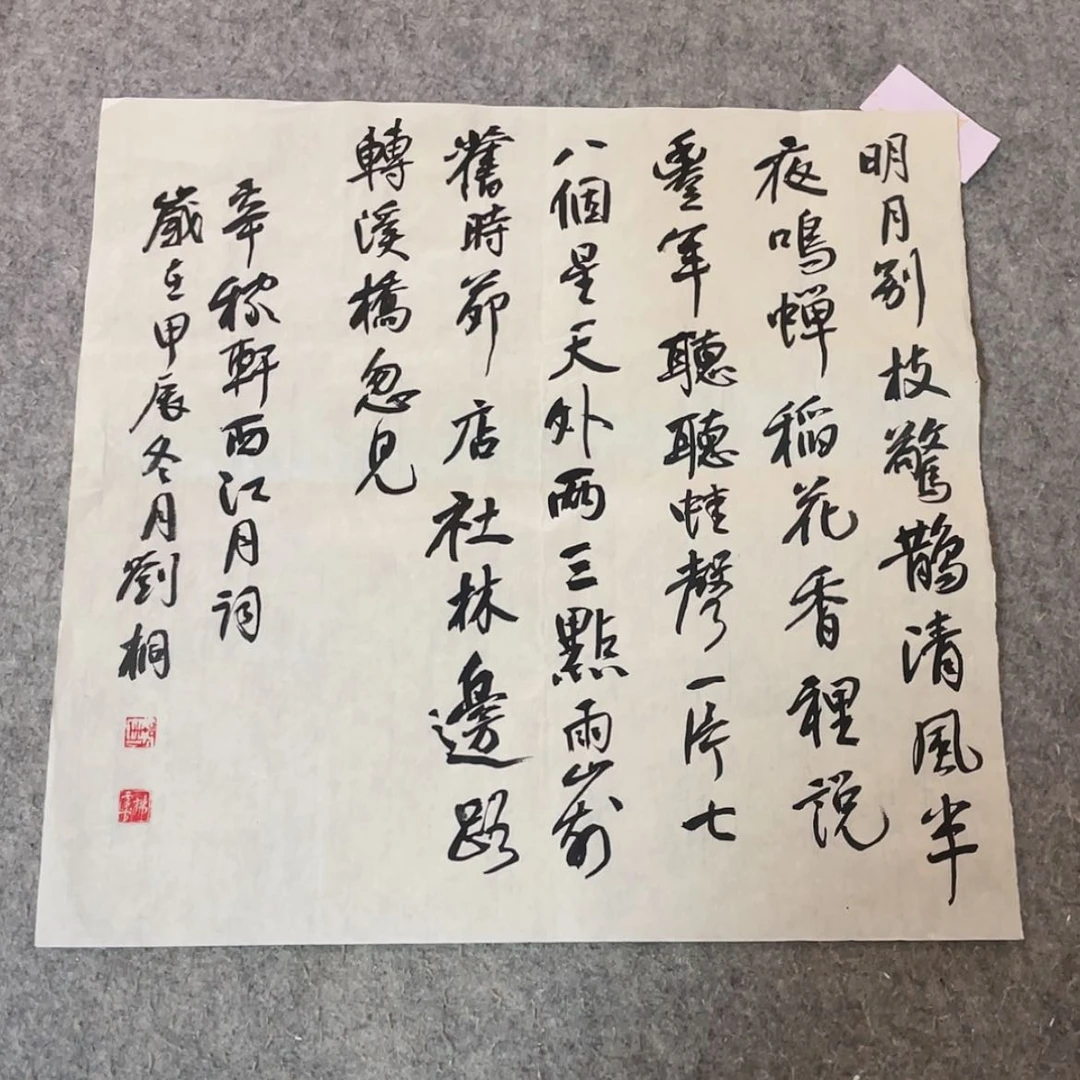 明月别枝驚鵲清風半
夜鳴蟬稻花香裡説
豐年聽聽蛙聲一片七
八個星天外兩三點雨山前
舊時茆店社林邊路
轉溪橋忽見
辛稼軒西江月詞
歲在甲辰冬月劉桐